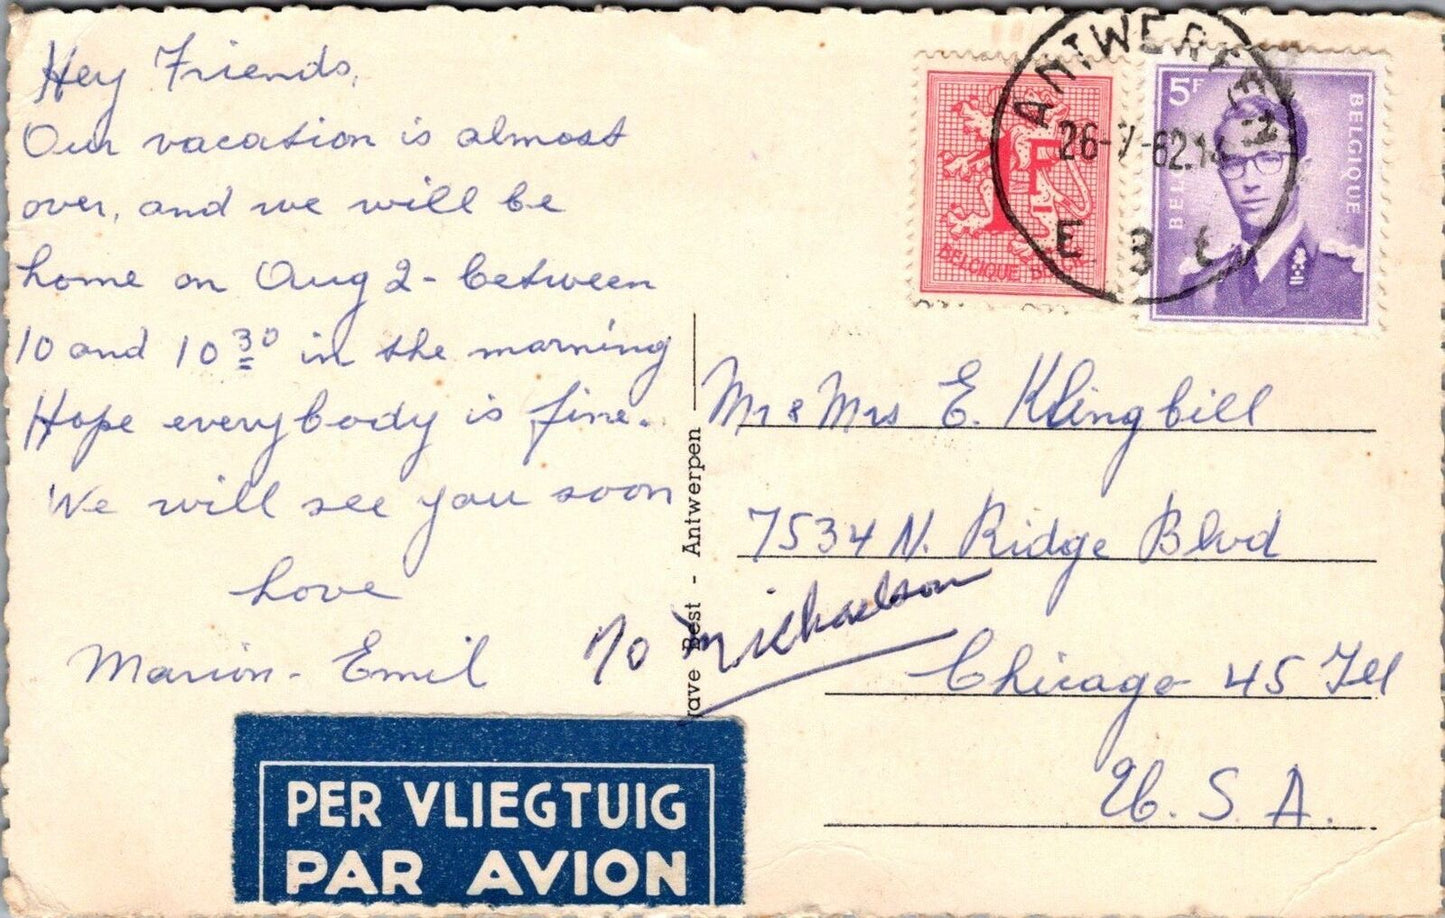 Hey Friends,
Our vacation is almost
over, and we will be
home on Aug 2 - between
10 and 10 30 in the morning
Hope everybody is fine.
We will see you soon
Love
Marion - Emil
℅ Michaelson
PER VLIEGTUIG
PAR AVION
rave Best - Antwerpen
1F
BELGIQUE
5F
BELGIQUE
ANTWERPEN
26-7-62
E 3 E
Mr & Mrs E. Klingbill
7534 N. Ridge Blvd
Chicago 45 Ill
U. S. A.